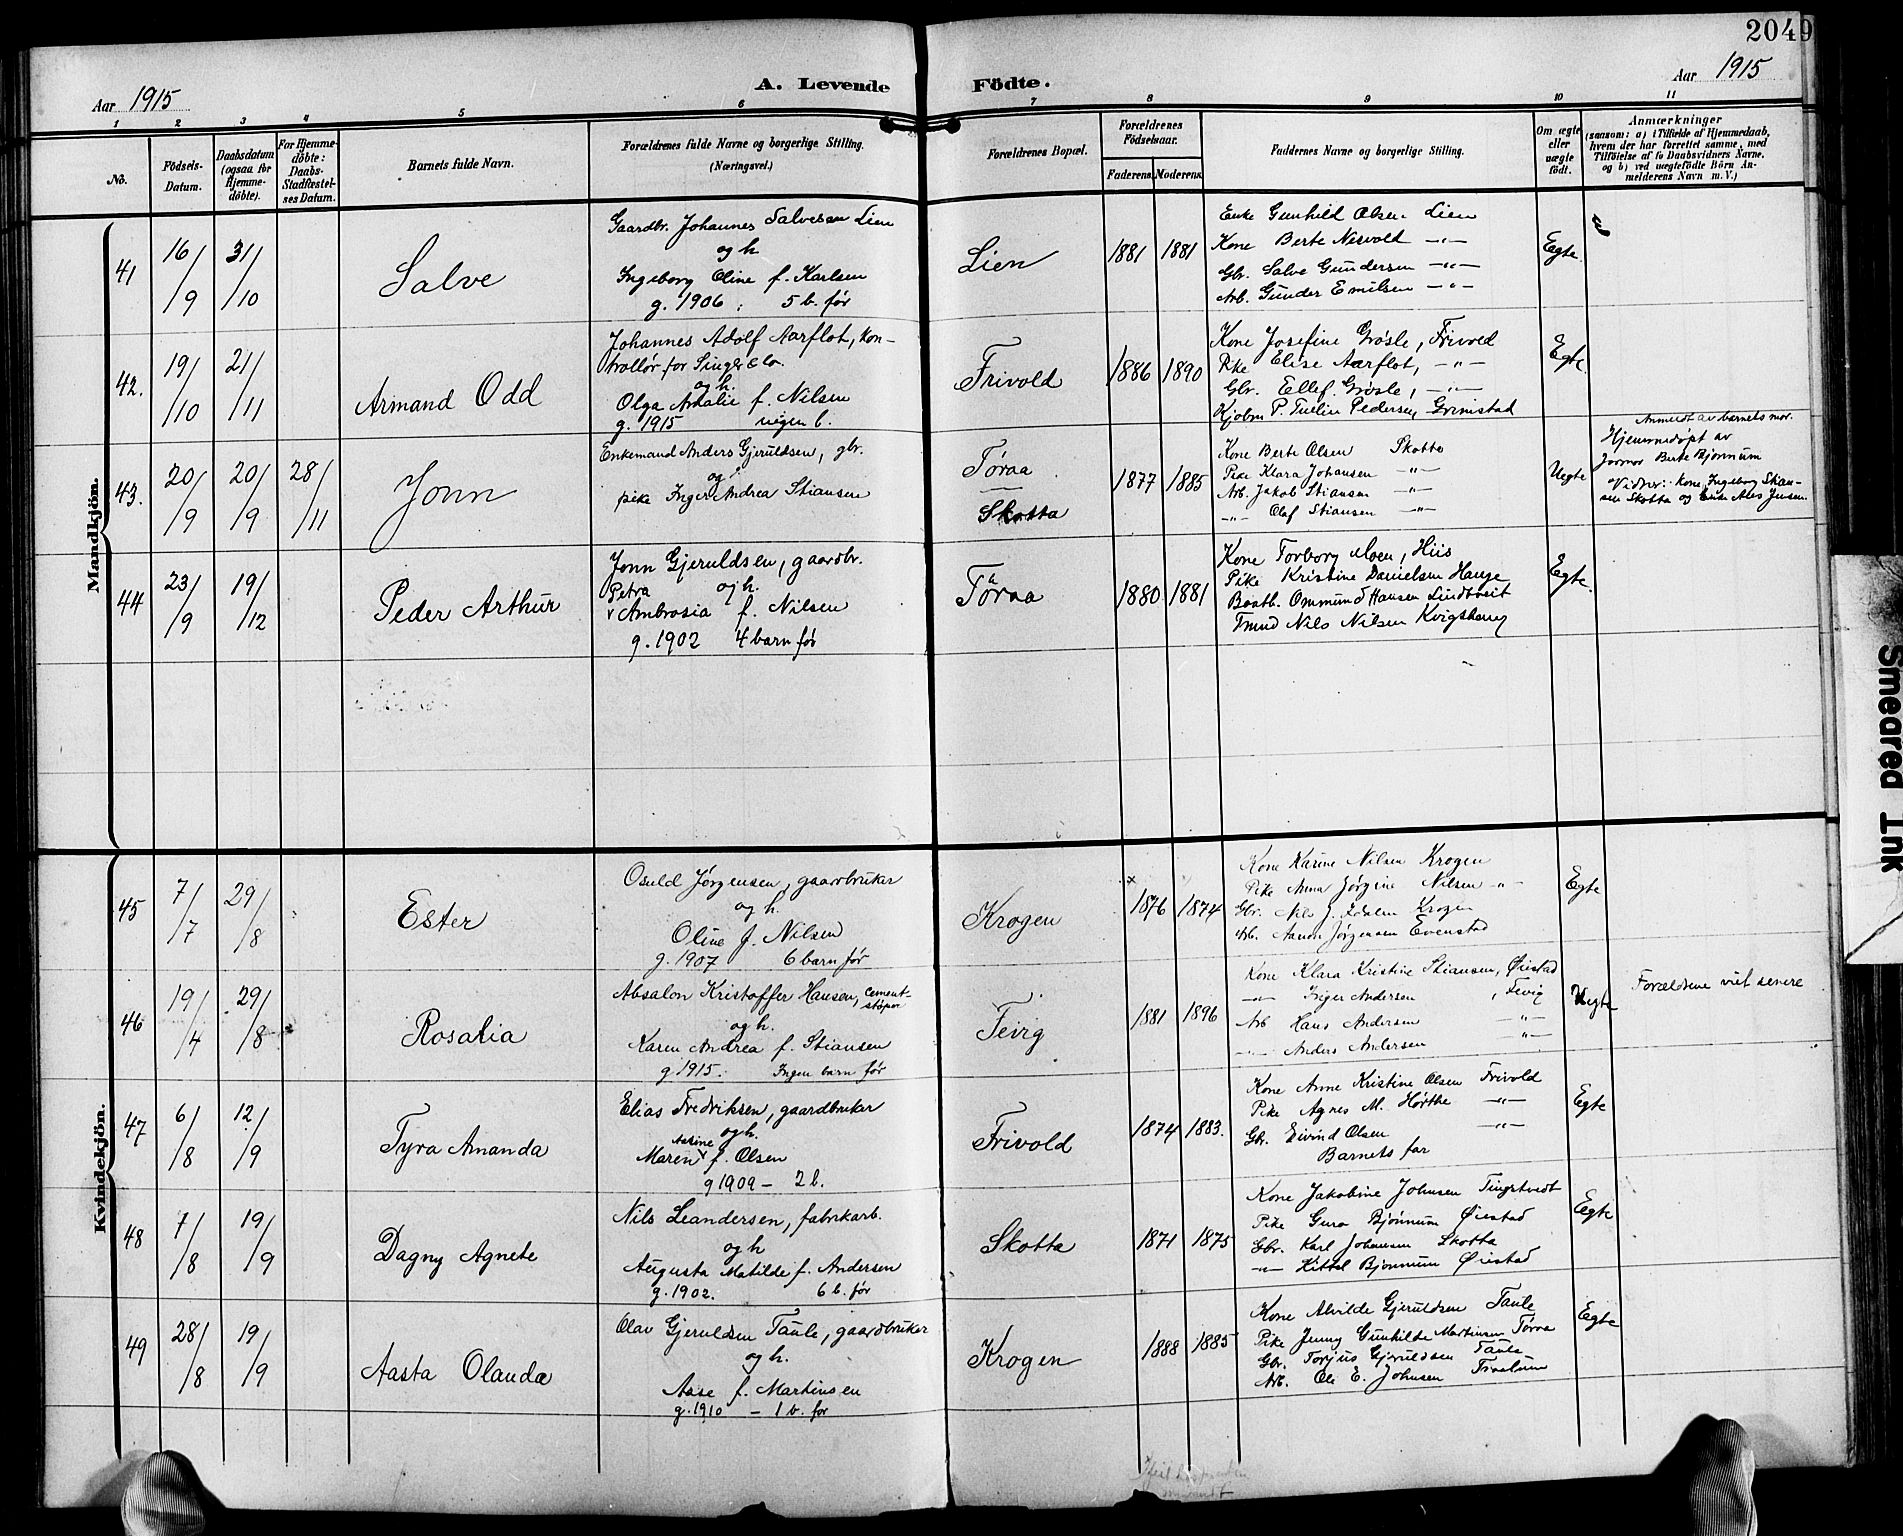 2049
Aar 1915
A. Levende Födte.
Aar 1915
1 2 3 4 5 6 7 8 9 10 11
No.
Födsels-Datum.
Daabsdatum (ogsaa for Hjemme-döbte).
For Hjemme-döbte: Daabs-Stadfæstel-ses Datum.
Barnets fulde Navn.
Forældrenes fulde Navne og borgerlige Stilling. (Næringsvei.)
Forældrenes Bopæl.
Forældrenes Födselsaar.
Faderens. Moderens.
Faddernes Navne og borgerlige Stilling.
Om ægte eller uægte födt.
Anmærkninger
(saasom: a) i Tilfælde af Hjemmedaab, hvem der har forrettet samme, med Tilföielse af to Daabsvidners Navne, og b) ved uægtefödte Börn An-melderens Navn m. V.)
Mandkjön.
41 16/9 31/10 Salve
Gaardbr. Johannes Salvesen Lien
og h.
Ingeborg Oline f. Karlsen
g. 1906 ; 5 b. før
Lien 1881 1881
Enke Gunhild Olsen Lien
Kone Berte Nesvold -"-
Gbr. Salve Gundersen -"-
Arb. Gunder Emilsen -"-
Egte.
42. 19/10 21/11 Armand Odd
Johannes Adolf Aarflot, kon-
trollør for Singer & Co.
og h.
Olga Amalie f. Nilsen
g. 1915 ingen b.
Frivold 1886 1890
Kone Josefine Grøsle, Frivold
Pike Elise Aarflot, -"-
Gbr. Ellef Grøsle, -"-
Kjøbm P. Tuelin Pedersen, Grimstad
Egte.
43. 20/9 20/9 28/11 Jonn
Enkemand Anders Gjeruldsen, gbr.
og
pike Inger Andrea Stiansen
Tøraa
Skotta
1877 1885
Kone Berte Olsen Skotta
Pike Klara Johansen -"-
Arb. Jakob Stiansen -"-
-"- Olaf Stiansen -"-
Uegte
Anmeldt av barnets mor.
Hjemmedøpt av
Jormor Berte Bjønnum
Vidner: kone Ingeborg Stian-
sen Skotta og Jensen.
44 23/9 19/12 Peder Arthur
Jonn Gjeruldsen, gaardbr.
Petra og h.
v Ambrosia f. Nilsen
g. 1902 4 barn før
Tøraa 1880 1881
Kone Torborg Moen, Hiis
Pike Kristine Danielsen Hauge
Baatb. Ommund Hansen Lindtveit
Nils Nilsen Kvigshaug
Egte.
Kvindekjön.
45 7/7 29/8 Ester
Osuld Jørgensen, gaardbruker
og h.
Oline f. Nilsen
g. 1907 6 barn før
Krogen x 1876 1874
Kone Karine Nilsen Krogen
Pike Anna Jørgine Nilsen -"-
Gbr. Nils J. Krogen
Arb. Aanon Jørgensen Evenstad
Egte
46 19/4 29/8 Rosalia
Absalon Kristoffer Hansen, cement-
støper
og h.
Karen Andrea f. Stiansen
g. 1915. Ingen barn før
Fevig 1881 1896
Kone Klara Kristine Stiansen, Øiestad
-"- Inger Andersen , Fevig
Arb Hans Andersen -"-
-"- Anders Andersen -"-
Uegte
Forældrene viet senere
47 6/8 12/9 Tyra Amanda
Elias Fredriksen, gaardbruker
og h.
Aasine
Maren v f. Olsen
g 1909 - 2 b.
Frivold 1874 1883.
Kone Anne Kristine Olsen Frivold
Pike Agnes M. Hørthe -"-
Gbr. Eivind Olsen -"-
Barnets far
Egte
48 7/8 19/9 Dagny Agnete
Nils Leandersen, fabrikarb.
og h
Augusta Matilde f. Andersen
g. 1902. 6 b. før
Skotta 1871 1875
Kone Jakobine Johnsen Tingstvedt
Pike Guro Bjönnum Øiestad
Gbr. Karl Johansen Skotta
-"- Kittel Bjönnum Øiestad
Egte
49 28/8 19/9 Aasta Olanda
Olav Gjeruldsen Taule, gaardbruker
og h.
Aase f. Martinsen
g. 1910 - 1 b. før
Krogen 1888 1885
Kone Alvilde Gjeruldsen Taule
Pike Jenny Gunhilde Martinsen Tøraa
Gbr. Torjus Gjeruldsen Taule
Arb. Ole E. Johnsen
Egte
Smeared Ink